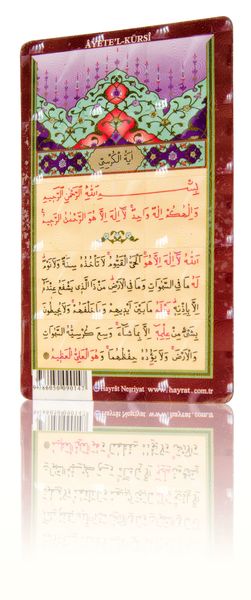 ÂYETE'L-KÜRSÎ
اٰيَةُ الْكُرْسِيّ
بِسْمِ اللّٰهِ الرَّحْمٰنِ الرَّحِيمِ
وَاِلٰهُكُمْ اِلٰهٌ وَاحِدٌ لَٓا اِلٰهَ اِلَّا هُوَ الرَّحْمٰنُ الرَّحِيمُ
اَللّٰهُ لَٓا اِلٰهَ اِلَّا هُوَ اَلْحَيُّ الْقَيُّومُ لَا تَأْخُذُهُ سِنَةٌ وَلَا نَوْمٌ
لَهُ مَا فِي السَّمٰوَاتِ وَمَا فِي الْاَرْضِ مَنْ ذَا الَّذِي يَشْفَعُ عِنْدَهُ
اِلَّا بِاِذْنِهِ يَعْلَمُ مَا بَيْنَ اَيْدِيهِمْ وَمَا خَلْفَهُمْ وَلَا يُحِيطُونَ
بِشَيْءٍ مِنْ عِلْمِهِ اِلَّا بِمَا شَٓاءَ وَسِعَ كُرْسِيُّهُ السَّمٰوَاتِ
وَالْاَرْضَ وَلَا يَؤُ۫دُهُ حِفْظُهُمَا وَهُوَ الْعَلِيُّ الْعَظِيمُ
Hayrât Neşriyat www.hayrat.com.tr